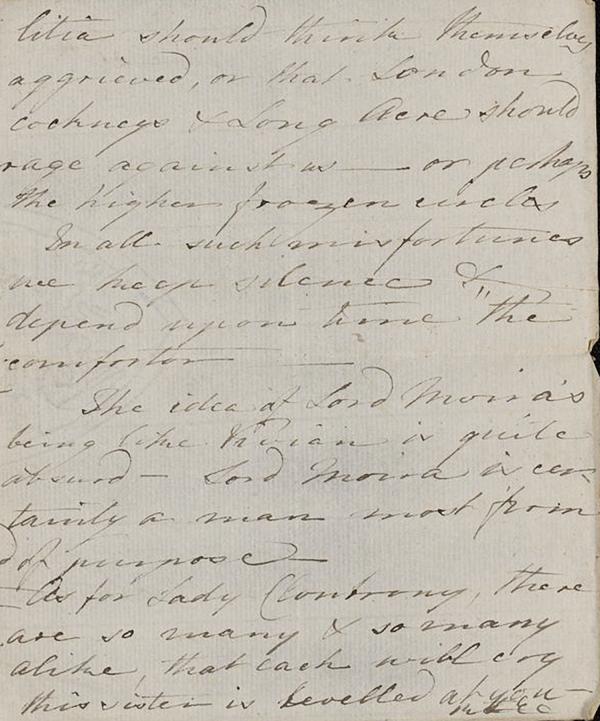 litia should think themselves
aggrieved, or that London
cockneys & Long Acre should
rage against us — or perhaps
the higher frozen circles
In all such misfortunes
we keep silence &
depend upon time "the
comfortor —
The idea of Lord Moira's
being like Vivian is quite
absurd — Lord Moira is cer-
tainly a man most firm
of purpose —
As for Lady Clonbrony, there
are so many & so many
alike, that each will cry
this sister is levelled at you —